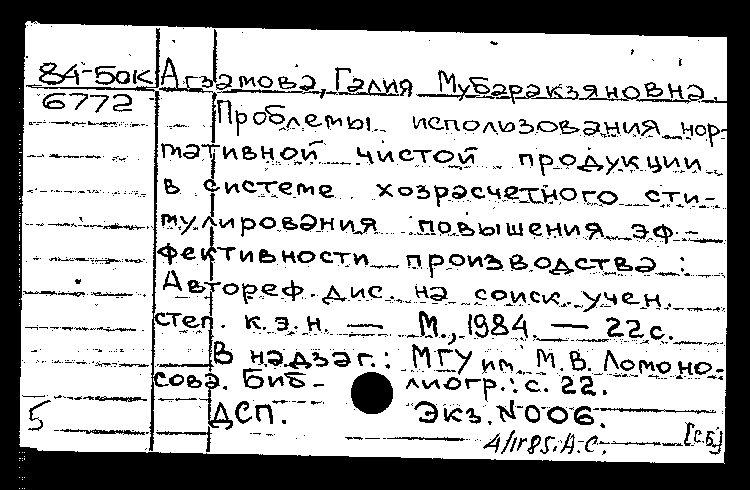 84-50к Агзамова, Галия Мубаракзяновна.
6772
Проблемы использования нор-
мативной чистой продукции
в системе хозрасчетного сти-
мулирования повышения эф-
фективности производства :
Автореф. дис. на соиск. учен.
степ. к.э.н. — М., 1984. — 22 с.
В надзаг.: МГУ им. М.В. Ломоно-
сова. Биб- лиогр.: с. 22.
5 ДСП. Экз. N 006.
[с.Б]